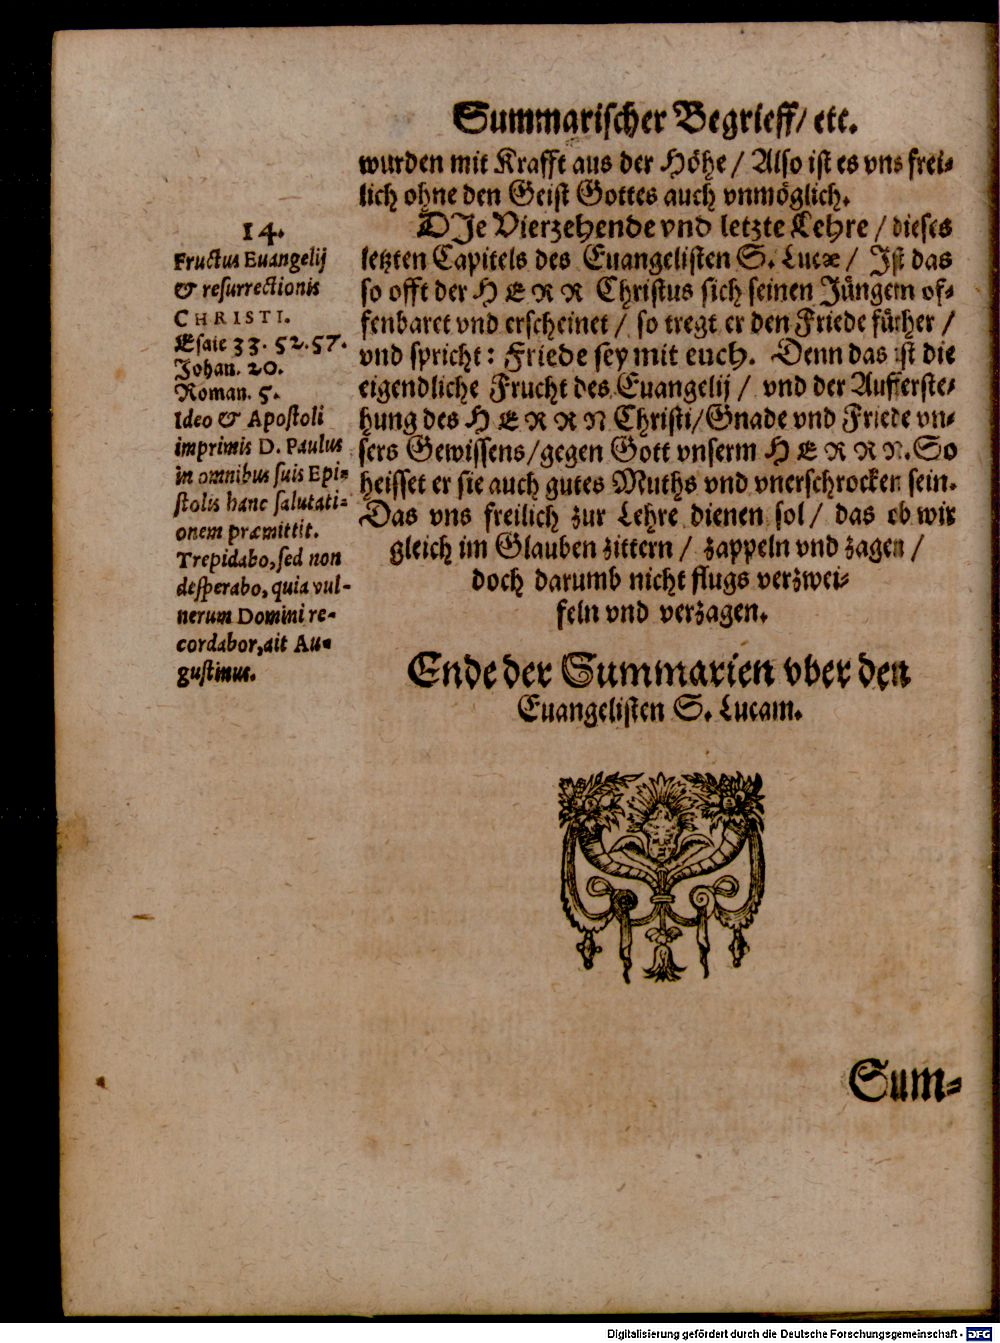 Summarischer Begrieff/ etc.
wurden mit Krafft aus der Höhe / Also ist es vns frei-
lich ohne den Geist Gottes auch vnmöglich.
DJe Vierzehende vnd letzte Lehre / dieses
letzten Capitels des Euangelisten S. Lucæ / Jst das
so offt der HERR Christus sich seinen Jüngern of-
fenbaret vnd erscheinet / so tregt er den Friede fürher /
vnd spricht: Friede sey mit euch. Denn das ist die
eigendliche Frucht des Euangelij / vnd der Aufferste-
hung des HERRN Christi/ Gnade vnd Friede vn-
sers Gewissens/ gegen Gott vnserm HERRN. So
heisset er sie auch gutes Muths vnd vnerschrocken sein.
Das vns freilich zur Lehre dienen sol / das ob wir
gleich im Glauben zittern / zappeln vnd zagen /
doch darumb nicht flugs verzwei-
feln vnd verzagen.
14.
Fructus Euangelij
& resurrectionis
CHRISTI.
Esaie 33. 52. 57.
Johan. 20.
Roman. 5.
Ideo & Apostoli
imprimis D. Paulus
in omnibus suis Epi-
stolis hanc salutati-
onem præmittit.
Trepidabo, sed non
desperabo, quia vul-
nerum Domini re-
cordabor, ait Au-
gustinus.
Ende der Summarien vber den
Euangelisten S. Lucam.
Sum-
Digitalisierung gefördert durch die Deutsche Forschungsgemeinschaft - DFG